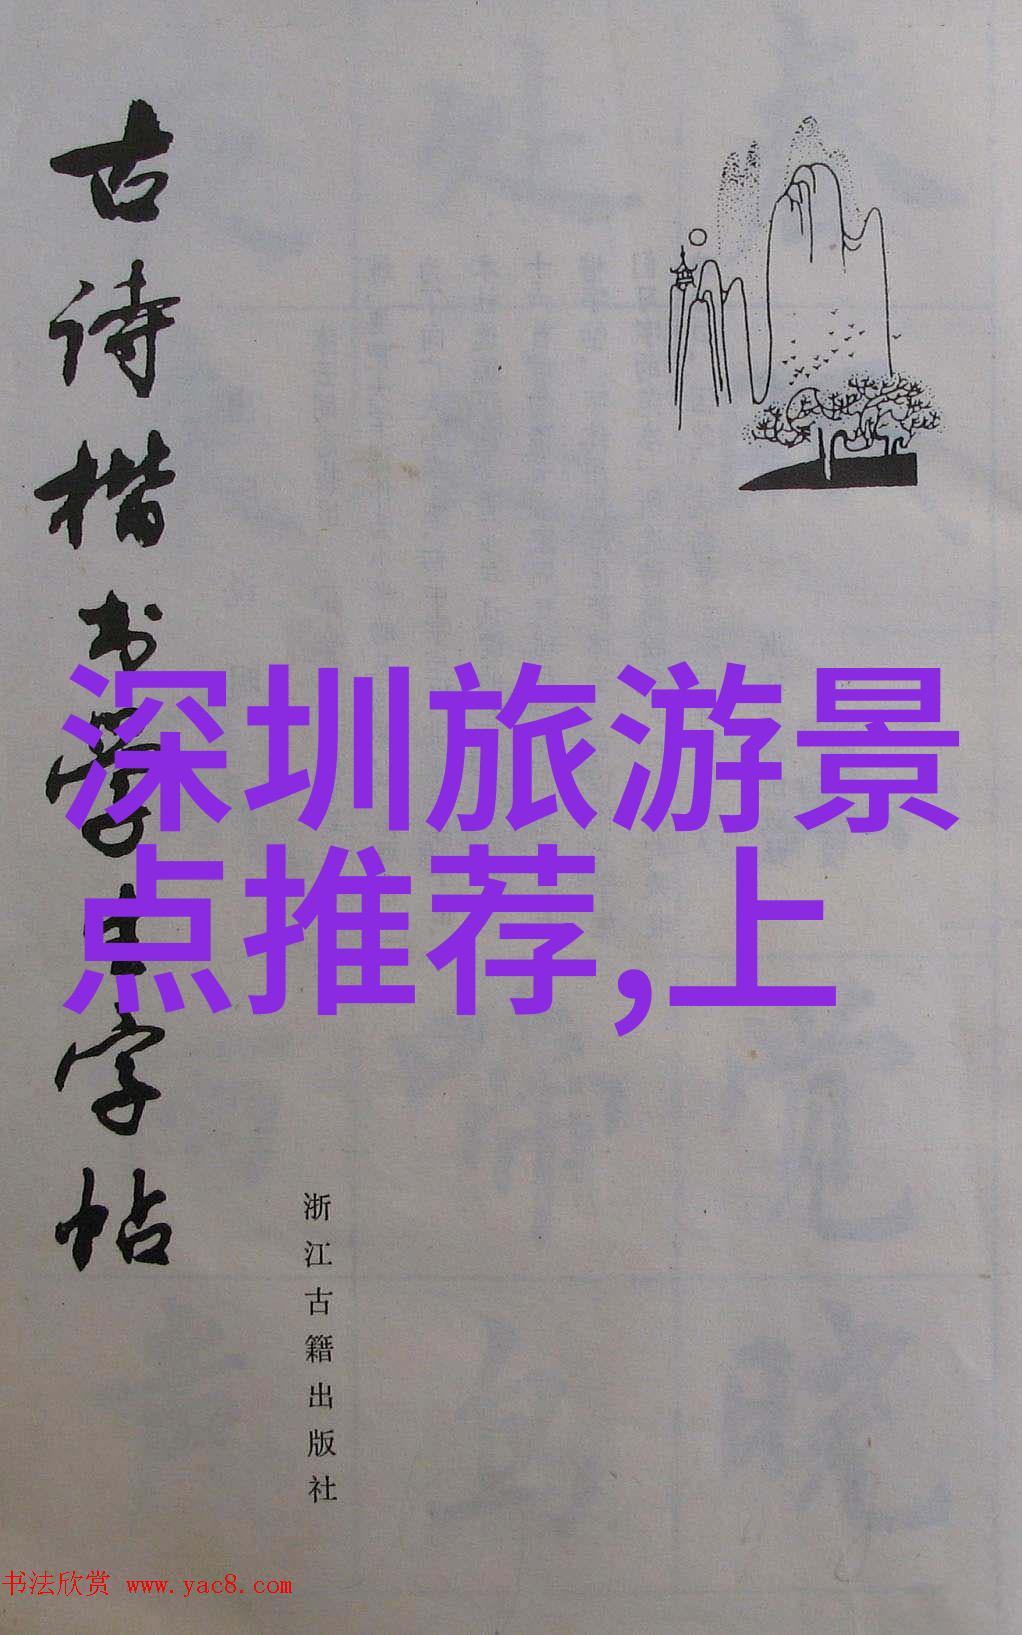 古诗楷书学生字帖
深圳旅游景
点推荐,上
浙江古籍出版社
书法欣赏 www.yac8.com